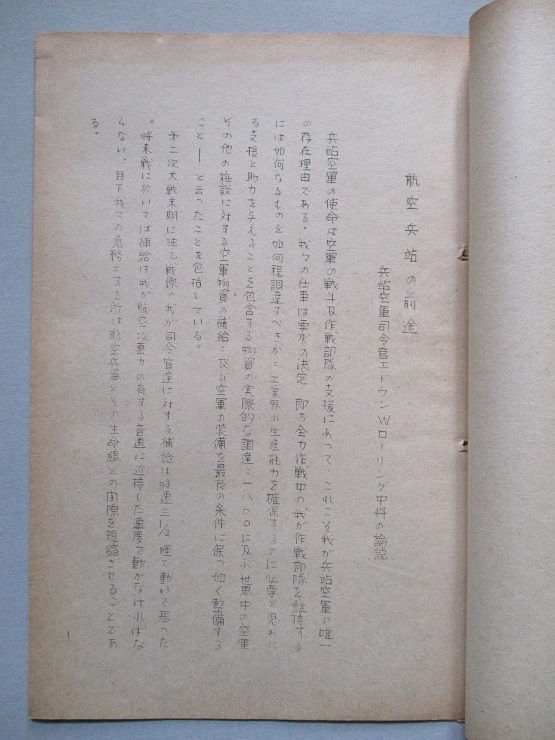 航空兵站の前途
兵站空軍司令官エドウンWローリング中将の論説
兵站空軍の使命は空軍の戦斗及作戦部隊の支援にあつて、これこそ我が兵站空軍の唯一
の存在理由である。我々の仕事は要求の決定、即ち全力作戦中の我が作戦部隊を維持する
には如何なるものを如何程調達すべきか：工業界の生産能力を確保するのに必要と思われ
る支援と助力を与えることを包含する物資の実際的な調達：一八〇〇に及ぶ世界中の空軍
その他の施設に対する空軍物資の補給：及び空軍の装備を最良の条件に保つ如く整備する
こと――と云つたことを包括している。
第二次大戦末期に独乙戦線の我が司令官達に対する補給は時速三1/2哩で動いて居つた
。将来戦に於いては補給は我が航空攻撃力の有する音速に近接した速度で動かなければな
らない。目下我々の急務とする所は航空兵器とその生命線との間隙を短縮させることであ
る。
1